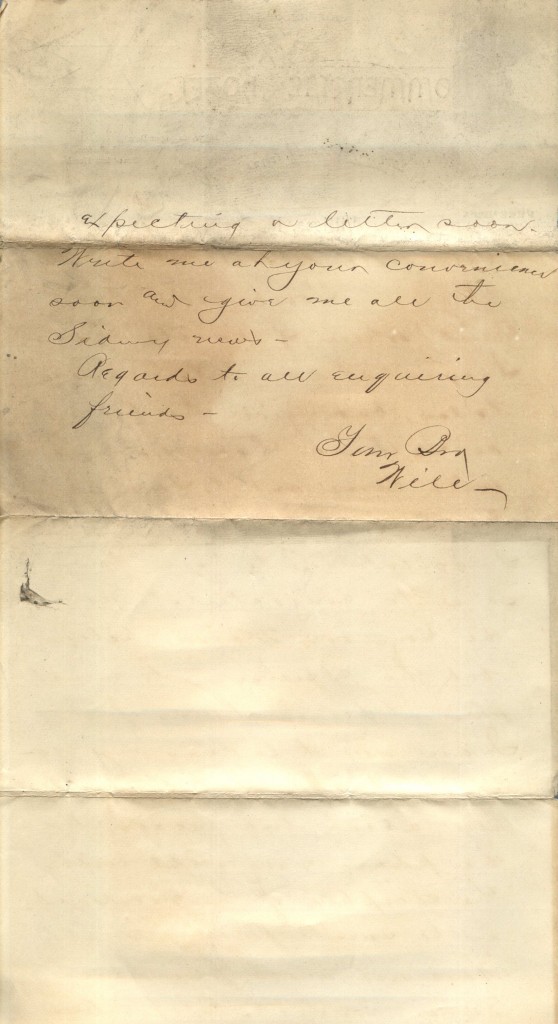 expecting a letter soon.
Write me at your convenience
soon and give me all the
Sidney news -
Regards to all enquiring
friends -
Your Bro
Will